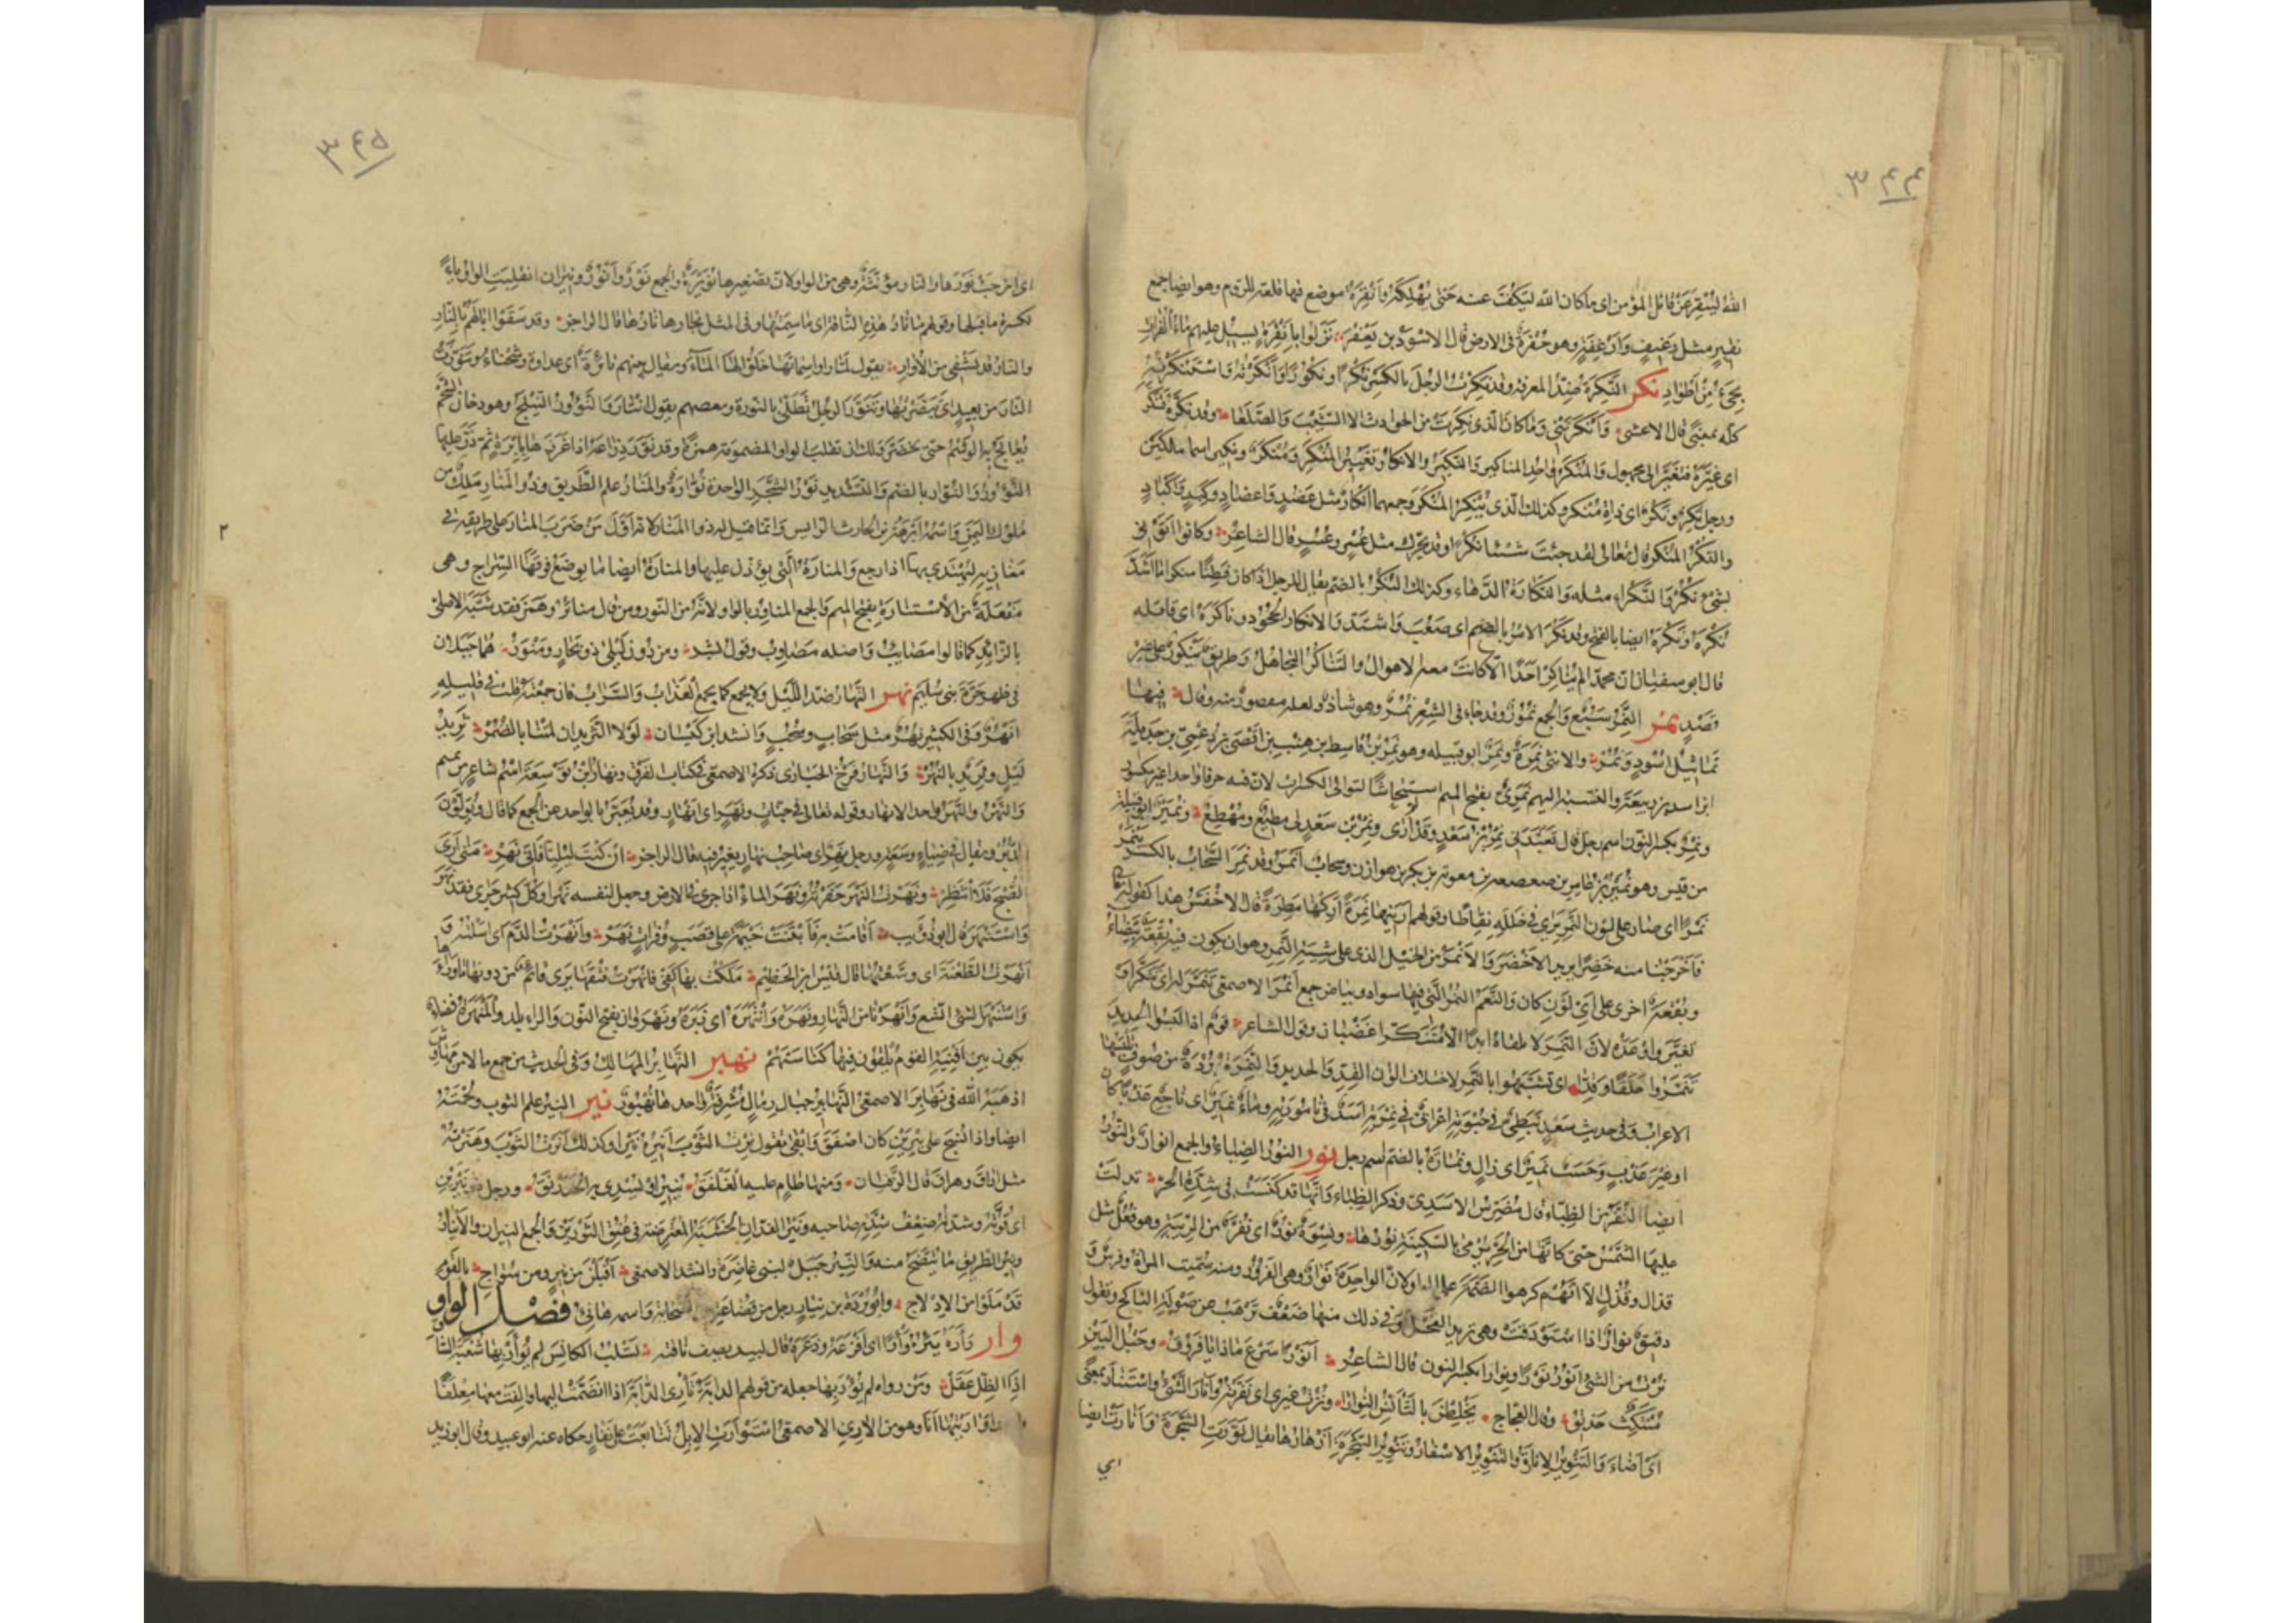 ٣٤٤
الله ليُنْقِرَ عن قاتل المؤمن اى ما كان الله ليكفّ عنه حتى يُهْلِكَهُ وأَنْقِرَة موضع فيه قلعة للروم وهو ايضا جمع
نقيرٍ مثل رغيف وأرغفة وهو حُفرة فى الارض قال الاسود بن يَعْفُر نزلوا بأنقرة يسيل عليهم ماءُ الفرات
يجىء من أطواد نكر النَّكِرَة ضدّ المعرفة وقد نَكِرْتُ الرجل بالكسر نُكْرًا ونُكُورًا وأنكرته واستنكرته
كله بمعنًى قال الاعشى وأنكرتنى وما كان الذى نكرت من الحوادث الا الشَّيْبَ والصَّلَعا وقد نَكَّرَهُ فتنكّر
اى غيّره فتغيّر الى مجهول والمنكر واحد المناكير والنكير والانكار تغيير المنكر ومُنْكَر ونكير اسما ملكين
ورجل نَكِرٌ ونَكُرٌ اى داهٍ مُنْكَر وكذلك الذى يُنْكِر المنكر وجمعهما انكار مثل عَضُد واعضاد وكَبِد وأكباد
والنُّكْر المنكر قال تعالى لقد جئت شيئا نكرا وقد يُحَرَّك مثل عُسْر وعُسُر قال الشاعر وكانوا أتونى
بشىء نُكُر والنَّكْراء مثله والنَّكارة الدَّهاء وكذلك النُّكْر بالضم يقال للرجل اذا كان فطنا منكرا ما أشدّ
نُكْرَهُ ونَكْرَهُ ايضا بالفتح وقد نَكُرَ الامر بالضم اى صَعُبَ واشتدّ والانكار الجحود وناكَرَهُ اى قاتله
قال ابو سفيان ان محمدا لم يُناكِر احدًا الا كانت معه الاهوال والتناكر التجاهل وطريق يَنْكُور على غير
قَصْدٍ نمر النَّمِر سَبُع والجمع نُمُور وقد جاء فى الشعر نُمُر وهو شاذ ولعله مقصور منه وقال فيها
تماثيل اسود ونُمُر والانثى نَمِرَة ونَمِر ابو قبيلة وهو نَمِر بن قاسط بن هِنْب بن أَفْصَى بن دُعْمِىّ بن جَدِيلة
ابن اسد بن ربيعة والنسبة اليهم نَمَرِىّ بفتح الميم استيحاشا لتوالى الكسرات لان فيه حرفا واحدا غير مكسور
ونِمْر بكسر النون اسم رجل قال تعبَّدنى نِمْر بن سعد وقد أُرَى ونِمْر بن سعد لى مطيع ومُهْطِع ونُمَيْر ابو قبيلة
من قيس وهو نُمَيْر بن عامر بن صعصعة بن معوية بن بكر بن هوازن وسحاب أنمر وقد نَمِرَ السَّحاب بالكسر يَنْمَرُ
نَمَرًا اى صار على لون النَّمِر يرى فى خلله نِقاطا وقولهم أرنيها نَمِرَة أُرِكْها مَطِرَة قال الاخفش هذا كقوله تعالى
فأخرجنا منه خضرا يريد الأخضر والأنمر من الخيل الذى على شِيَة النَّمِر وهو ان يكون فيه بقعة بيضاء
وبقعة اخرى على اىّ لون كان والنَّعَم النُّمْر التى فيها سواد وبياض جمع أنمر الاصمعى تَنَمَّرَ له اى تنكّر و
تغيّر واوعده لان النَّمِر لا تلقاه ابدا الا متنكرا غضبان وقول الشاعر قوم اذا لبسوا الحديد
تَنَمَّروا حَلَقًا وقِدًّا اى تشبّهوا بالنمر لاختلاف الوان القِدّ والحديد والنَّمِرَة بُرْدَة من صوف تلبسها
الاعراب وفى حديث سعد نَبَطِىّ فى حُبْوَتِهِ اعرابىّ فى نَمِرَتِهِ اسد فى تامورته وماء نَمِير اى ناجع عذبا كان
او غير عذب وحَسَب نَمِير اى زاكٍ ونُمارة بالضم اسم رجل نور النُّور الضياء والجمع انوار والنُّور
ايضا النُّفَّر من الظباء قال مُضَرِّس الاسدى وذكر الظباء وأنها قد كنست فى شدّة الحر تدلّت
عليها الشمس حتى كأنها من الحرّ تُرْمَى بالسكينة نورُها ونِسوة نُور اى نُفَّر من الرِّيبة وهو فُعُل مثل
قَذال وقُذُل الا انهم كرهوا الضمّة على الواو لان الواحدة نَوار وهى الفَرُور ومنه سميت المرأة وفرس و
دقيق نوار اذا استودقت وهى تريد الفحل وفى ذلك منها ضعف تَرْهَب عن صولة الناكح وتقول
نُرْتُ من الشىء أنور نَوْرا ونِوارا بكسر النون قال الشاعر أنورًا سَرْعَ ماذا يا فَروق وحبل البين
منتكث حذيق وقال العجاج يخلطن بالتأنّس النِّوارا ونُرْتُ غيرى اى نفّرته وأنار الشىء واستنار بمعنًى
اى أضاء والتنوير الإنارة والتنوير الاسفار وتنوير الشجرة إزهارها يقال نَوَّرَتِ الشجرة وأنارت ايضا
اى
٣٤٥
اى اخرجت نَوْرَها والنار مؤنّثة وهى من الواو لان تصغيرها نُوَيْرَة والجمع نُور وأنْوُر ونيران انقلبت الواو ياءً
لكسرة ما قبلها وقولهم ما نار هذه الناقة اى ما سِمَتُها وفى المثل نِجارها نارها قال الراجز وقد سَقَوْا آبالهم بالنار
والنار قد تَشْفِى من الأُوار يقول لمّا راوا سماتها خَلَّوْا لها الماء ويقال بينهم نائرة اى عداوة وشحناء وتَنَوَّرْتُ
النار من بعيد اى تبصّرتها وتنوّر الرجل تَطَلَّى بالنُّورة وبعضهم يقول انتار والنَّؤُور النِّيلَج وهو دخان الشحم
يعالج به الوشم حتى يخضرّ ولك ان تقلب الواو المضمومة همزة وقد نَوَّر ذراعه اذا غرزها بابرة ثم ذرّ عليها
النؤور والنُّوّار بالضم والتشديد نَوْر الشجر الواحدة نُوّارة والمَنار علم الطريق وذو المنار ملك من
ملوك اليمن واسمه أبرهة بن الحارث الرايش وانما قيل له ذو المنار لانه اول من ضرب المنار على طريقه فى
٢
مغازيه ليهتدى بها اذا رجع والمنارة التى يؤذّن عليها والمنارة ايضا ما يوضع فوقها السِّراج وهى
مَفْعَلة من الاستنارة بفتح الميم والجمع المناور بالواو لانه من النور ومن قال منائر وهمز فقد شبّه الاصلى
بالزائد كما قالوا مصائب واصله مصاوب وقول بشر ومن دون ليلى ذو بحار ومَنْوَر هما جبلان
فى ظهر حَرَّة بنى سُلَيم نهر النهار ضدّ الليل ولا يجمع كما لا يجمع العذاب والسراب فان جمعته قلت فى قليله
أنْهُر وفى الكثير نُهُر مثل سحاب وسُحُب وانشد ابن كَيْسان لولا الثريدان لمتنا بالضُّمُر ثريد
ليل وثريد بالنُّهُر والنهار فرخ الحُبارَى ذكره الاصمعى فى كتاب الفرق ونهار بن تَوْسِعَة اسم شاعر من تميم
والنَّهْر والنَّهَر واحد الانهار وقوله تعالى فى جنّات ونَهَر اى انهار وقد يعبّر بالواحد عن الجمع كما قال ويولّون
الدُّبُر ويقال فى ضياء وسعة ورجل نَهِر اى صاحب نهار يغير فيه قال الراجز ان كنت ليليًّا فانى نَهِر متى أرى
الصبح فلا أنتظر ونهرت النهر حفرته ونهر الماء اذا جرى فى الارض وجعل لنفسه نهرا وكل كثير جرى فقد نَهَرَ
واستنهر قال ابو ذؤيب أقامت به فابتنت خيمةً على قَصَب وفُرات نَهَر وأنهرت الدم اى اسلته و
أنهرت الطعنة اى وسّعتها قال قيس بن الخَطيم ملكت بها كفى فأنهرت فتقها يرى قائم من دونها ما وراءها
واستنهر الشىء اتّسع وأنهرنا من النهار ونَهَرَهُ وانتهره اى زبره ونهروان بفتح النون والراء بلد والمَنْهَرَة فضاء
يكون بين أفنية القوم يُلقون فيها كُناستهم نهبر النَّهابر المهالك وفى الحديث من جمع مالا من مَهاوِش
اذهبه الله فى نهابر الاصمعى النهابير حبال رمال مُشرفة واحدها نُهْبُور نير النِّير علم الثوب ولُحمته
ايضا واذا نُسج على نِيرَيْن كان أصفق وأبقى تقول نِرْتُ الثوب أنيره نَيْرا وكذلك أنَرْتُ الثوب وهَنَرْتُه
مثل أراق وهراق قال الزَّفَيان ومنهل طام عليه الغلفق ينير او يسدى به الخَدَرْنَق ورجل ذو نيرين
اى قوّته وشدّته ضِعف شدّة صاحبه ونِير الفدّان الخشبة المعترضة فى عُنُق الثورين والجمع النيران والأنيار
ونير الطريق ما يتّضح منه والنِّير جبل لبنى غاضرة وانشد الاصمعى أقبلن من نير ومن سُواج بالقوم
قد مَلُّوا من الإدلاج وابو بُرْدة بن نيار رجل من قُضاعة من الصحابة واسمه هانئ فصل الواو
وار وأَرَهُ يَئِرُهُ وَأْرا اى أفزعه وذعره قال لبيد يصف ناقته تسلب الكانس لم يُوأر بها شُعبة الساق
اذا الظل عقل ومن رواه لم يُؤْرَ بها جعله من قولهم الدابة تأرى الدابة اذا انضمّت اليها وألِفت معها معلفًا
واحدا وآريتها أنا وهو من الآرىّ الاصمعى استوأرت الابل تتابعت على نِفار حكاه عنه ابو عبيد وقال ابو زيد